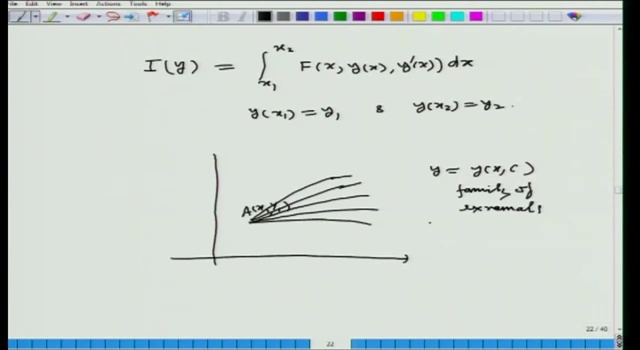 File Edit View Insert Actions Tools Help
I(y) = ∫_{x₁}^{x₂} F(x, y(x), y'(x)) dx
y(x₁) = y₁ & y(x₂) = y₂.
y = y(x, c)
family of
exremals
A(x₁, y₁)
22 / 40
22